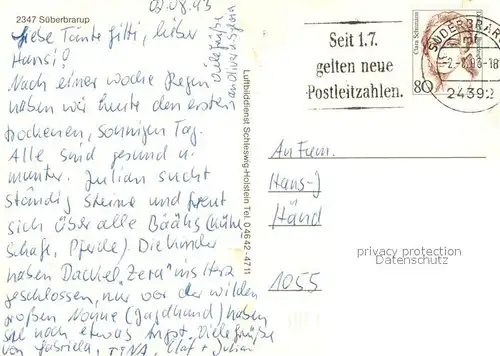 2347 Süberbrarup
02.08.93
Liebe Tante Gitti, lieber
Hansi!
Nach einer Woche Regen
haben wir heute den ersten
trockenen, sonnigen Tag.
Alle sind gesund u.
munter. Julian sucht
ständig Steine und freut
sich über alle Bäähs (Kühe,
Schafe, Pferde). Die Kinder
haben Dackel „Zera“ ins Herz
geschlossen, nur vor der wilden
großen Nonne (Jagdhund) haben
sie noch etwas Angst. Viele Grüße
von Gabriela, TINA, Olaf + Julian
Viele Grüße
an Oliver
Luftbilddienst Schleswig-Holstein Tel. 04642-4711
Seit 1.7.
gelten neue
Postleitzahlen.
SÜDERBRARUP
mf
-2.-8.93-18
24392
Clara Schumann
80
An Fam.
Hans-J
Händ
1055
privacy protection
Datenschutz